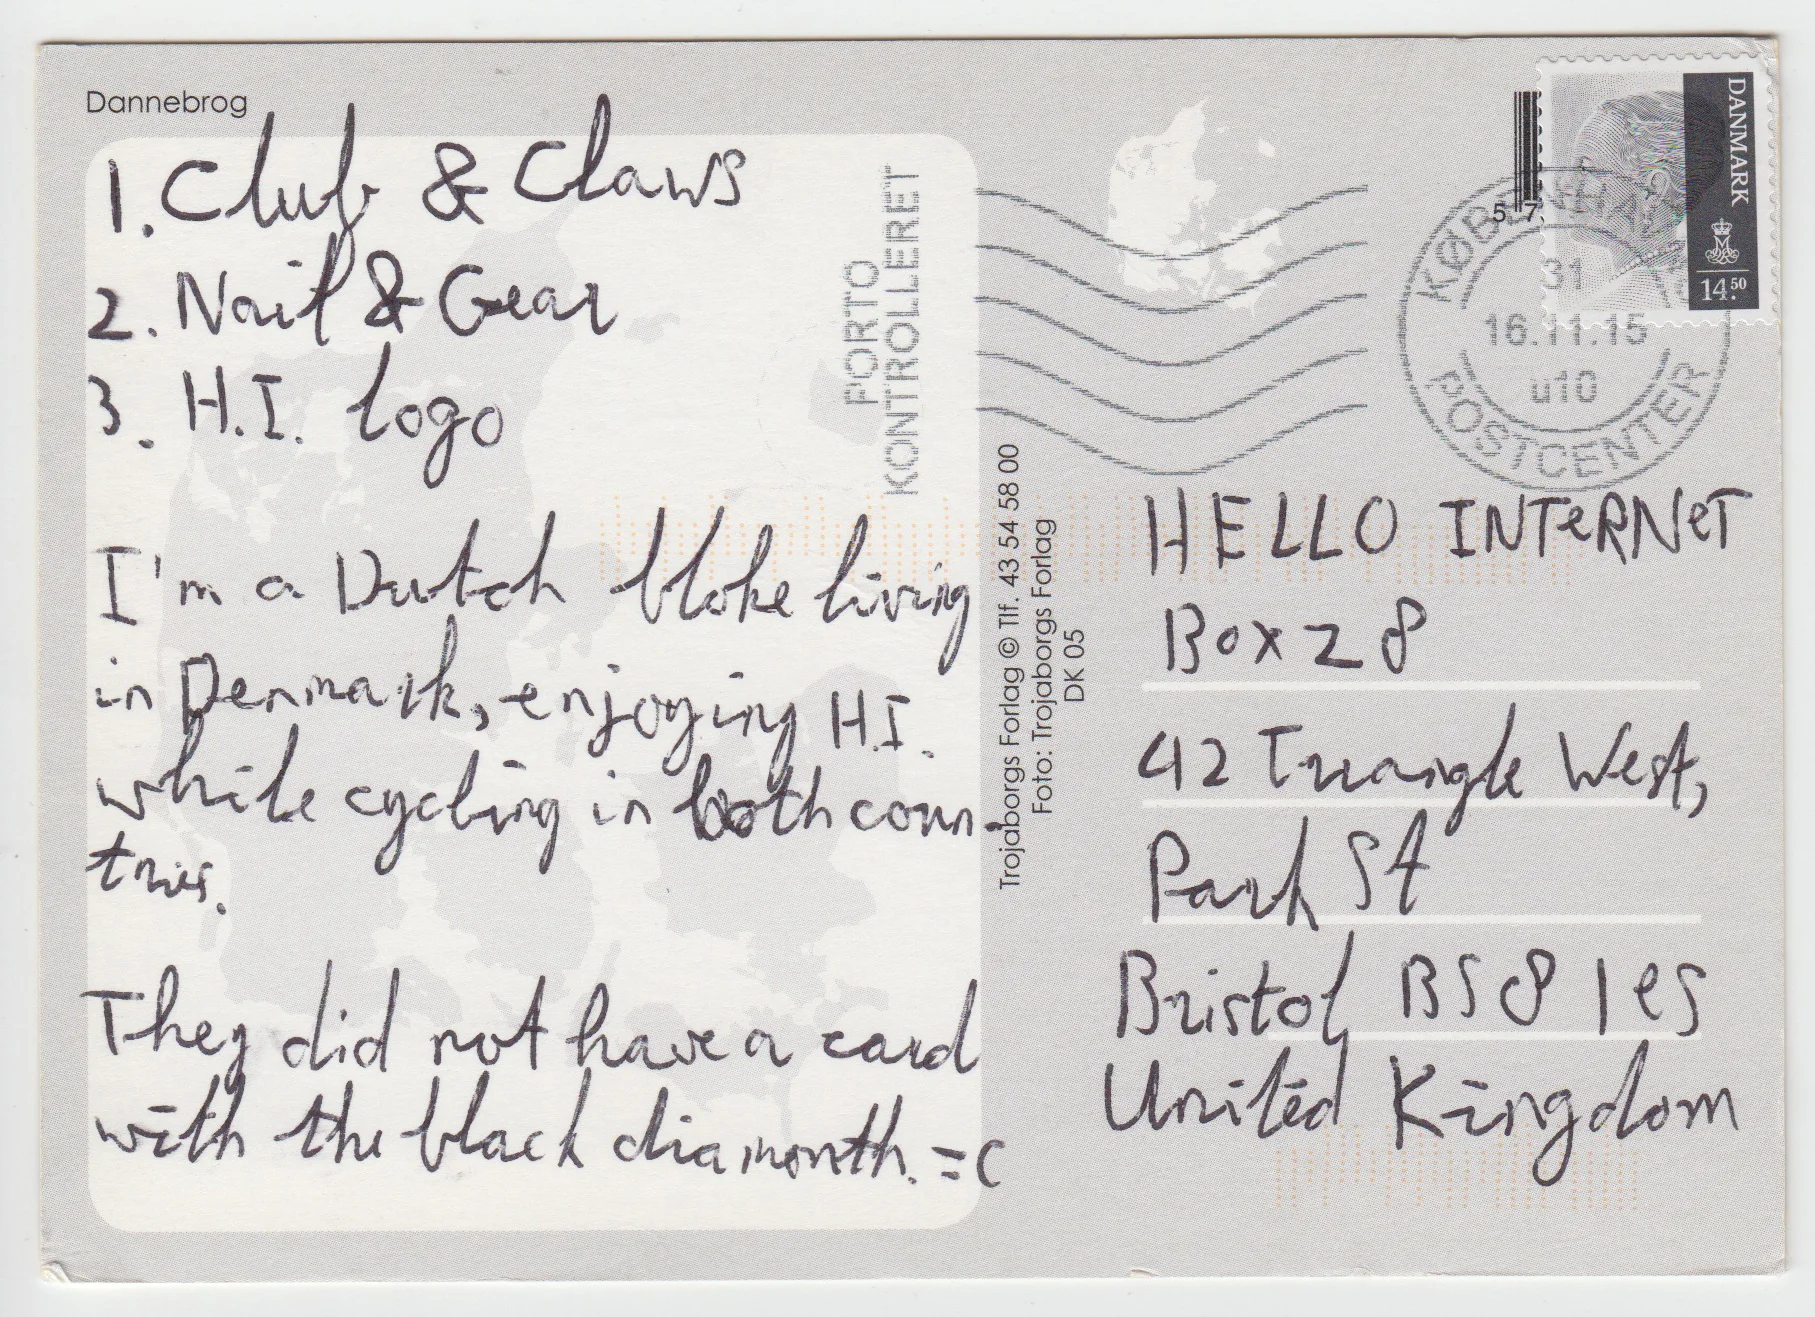 Dannebrog
1. Club & Claws
2. Nail & Gear
3. H.I. logo
I'm a Dutch bloke living
in Denmark, enjoying H.I.
while cycling in both coun-
tries.
They did not have a card
with the black diamonth. =C
PORTO
KONTROLLERET
Trojaborgs Forlag © Tlf. 43 54 58 00
Foto: Trojaborgs Forlag
DK 05
DANMARK
14.50
5 7
KØBENHAVNS
31
16.11.15
u10
POSTCENTER
HELLO INTeRNeT
Box 28
42 Triangle West,
Park St
Bristol BS8 1es
United Kingdom